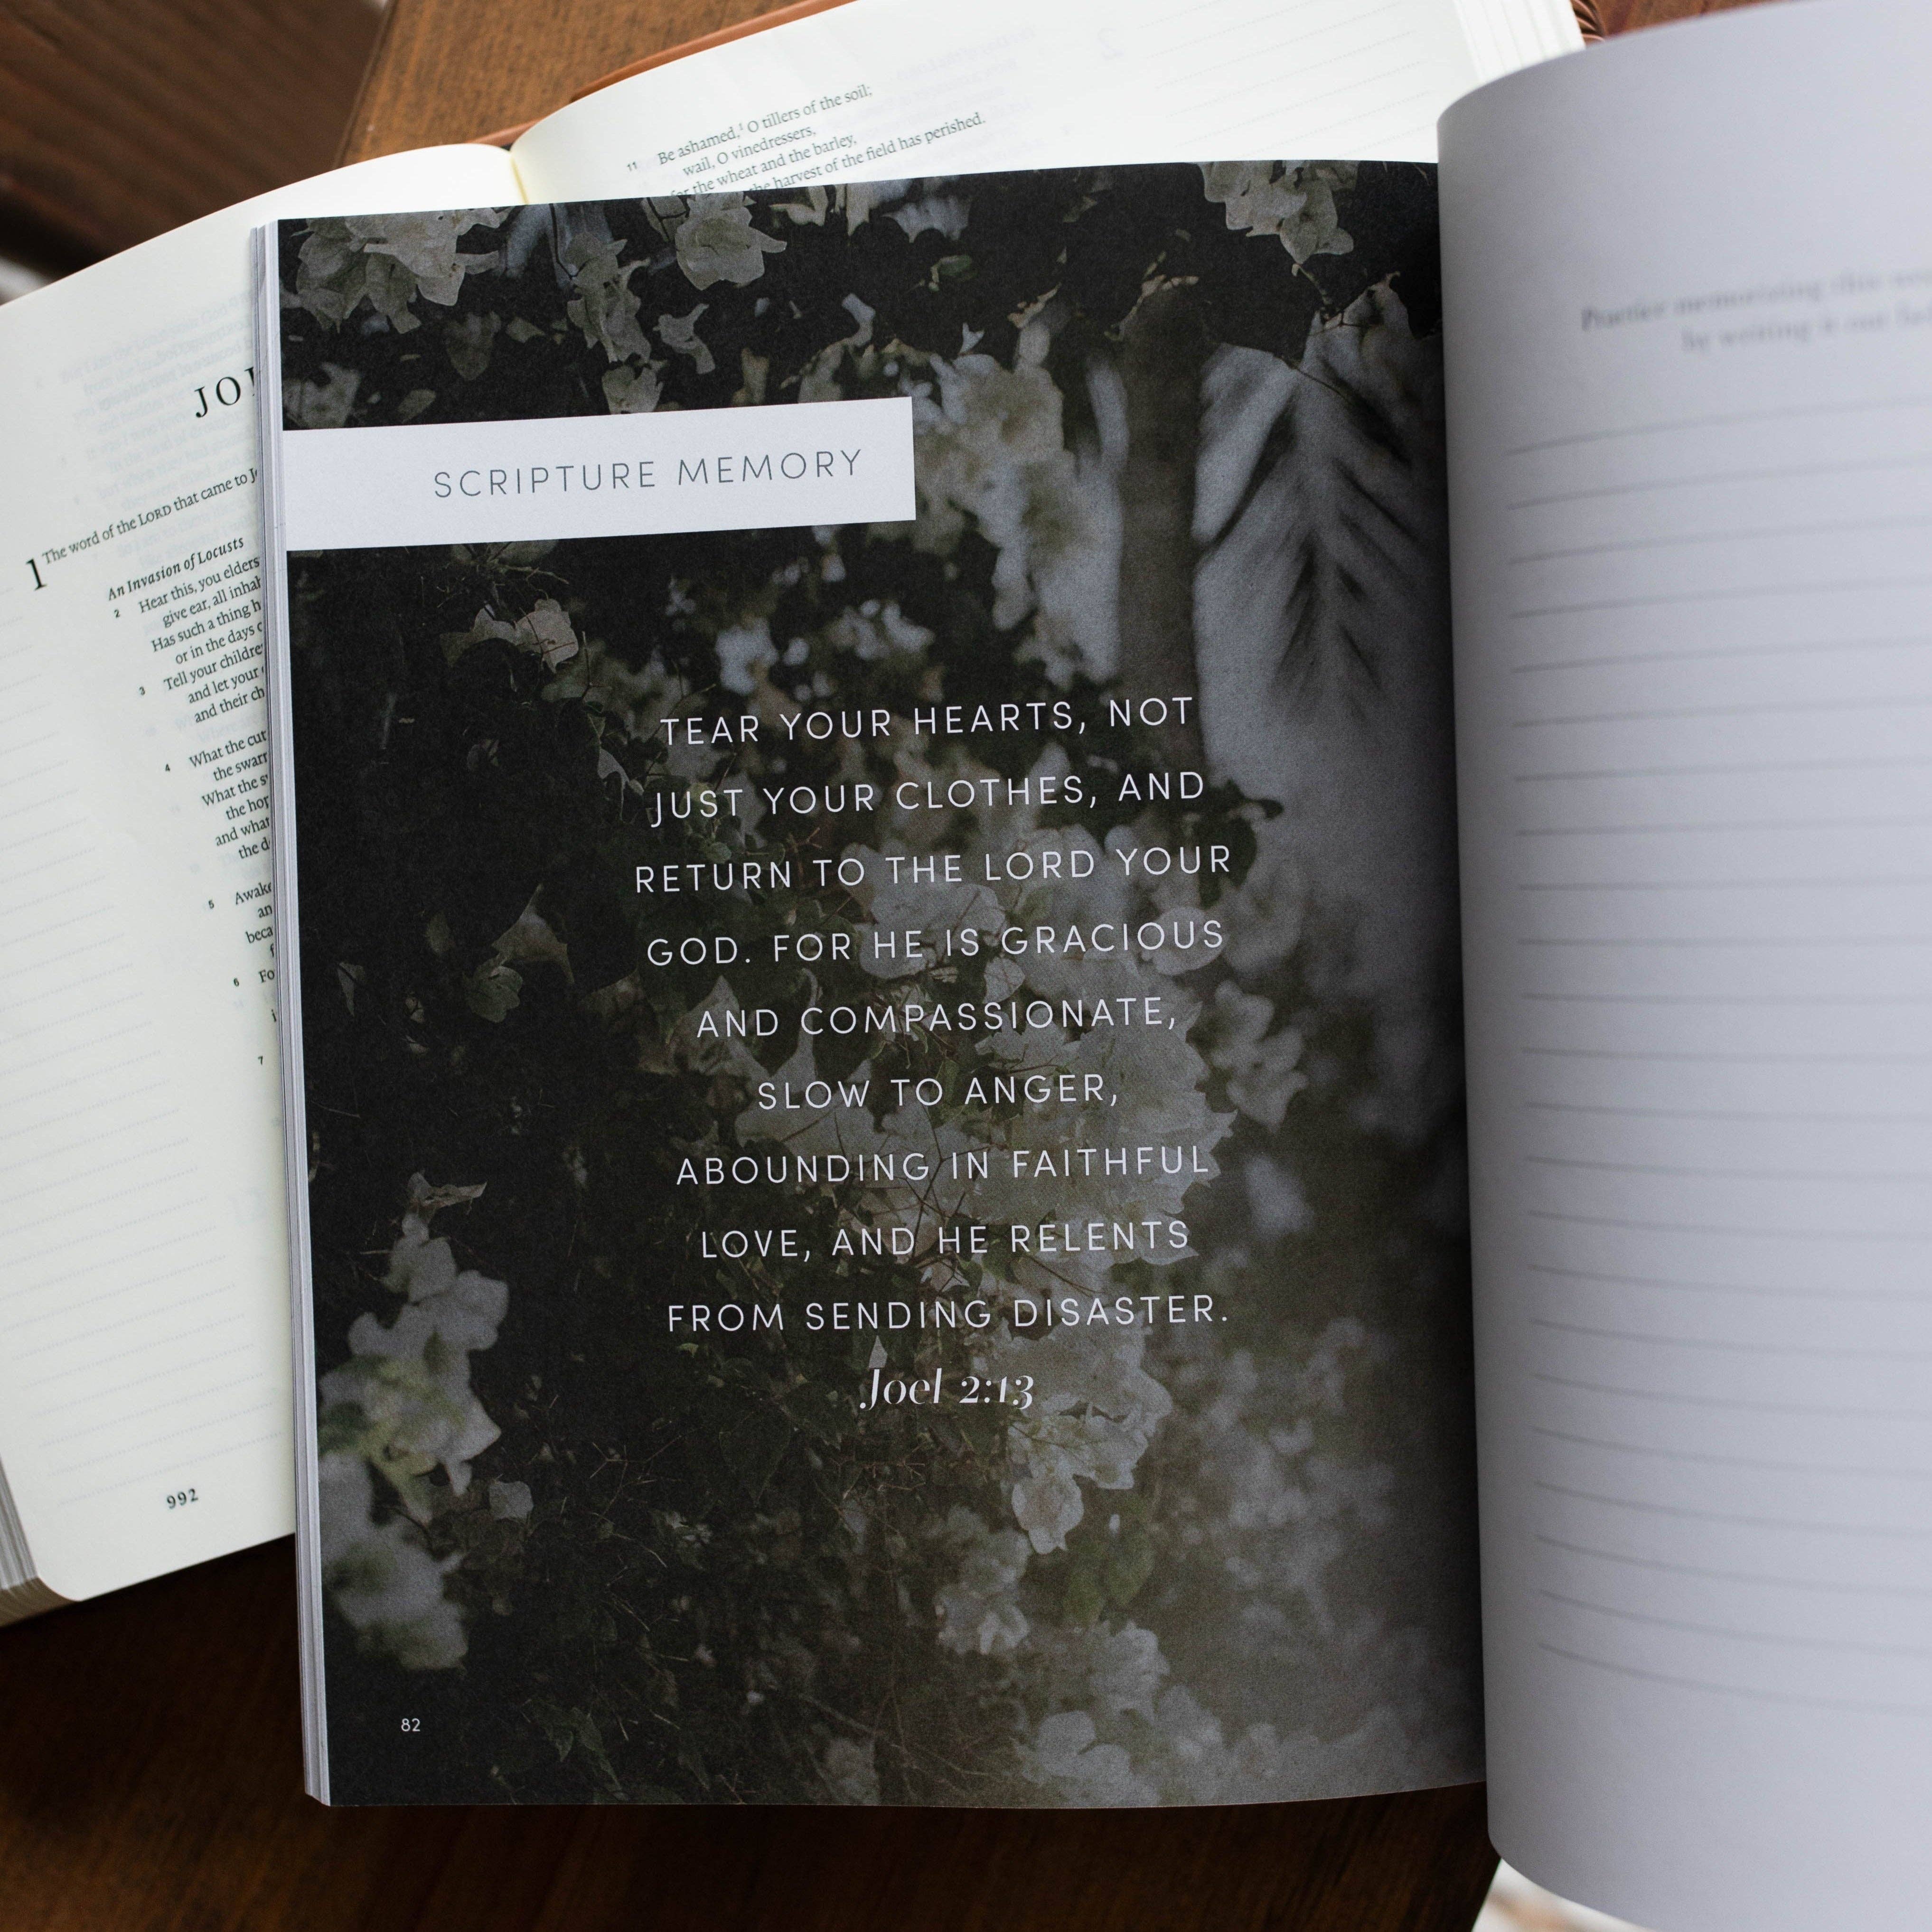 11 Be ashamed,¹ O tillers of the soil;
wail, O vinedressers,
for the wheat and the barley,
the harvest of the field has perished.
1 The word of the LORD that came to
An Invasion of Locusts
2 Hear this, you elders
give ear, all
Has such a thing
or in the days
3 Tell your
and let your
and their
4 What the
the
What the
the
and what
the
5
6
7
992
SCRIPTURE MEMORY
TEAR YOUR HEARTS, NOT
JUST YOUR CLOTHES, AND
RETURN TO THE LORD YOUR
GOD. FOR HE IS GRACIOUS
AND COMPASSIONATE,
SLOW TO ANGER,
ABOUNDING IN FAITHFUL
LOVE, AND HE RELENTS
FROM SENDING DISASTER.
Joel 2:13
82
Practice memorizing this
by writing it out